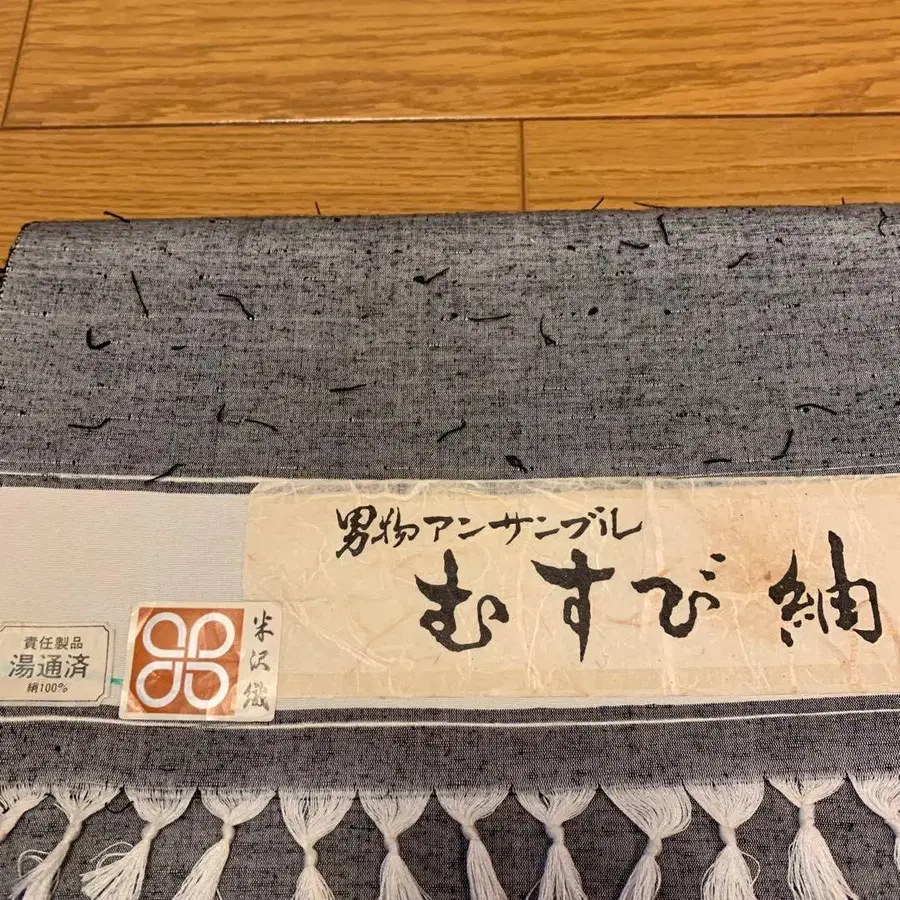 男物アンサンブル
むすび紬
米沢織
責任製品
湯通済
絹100%